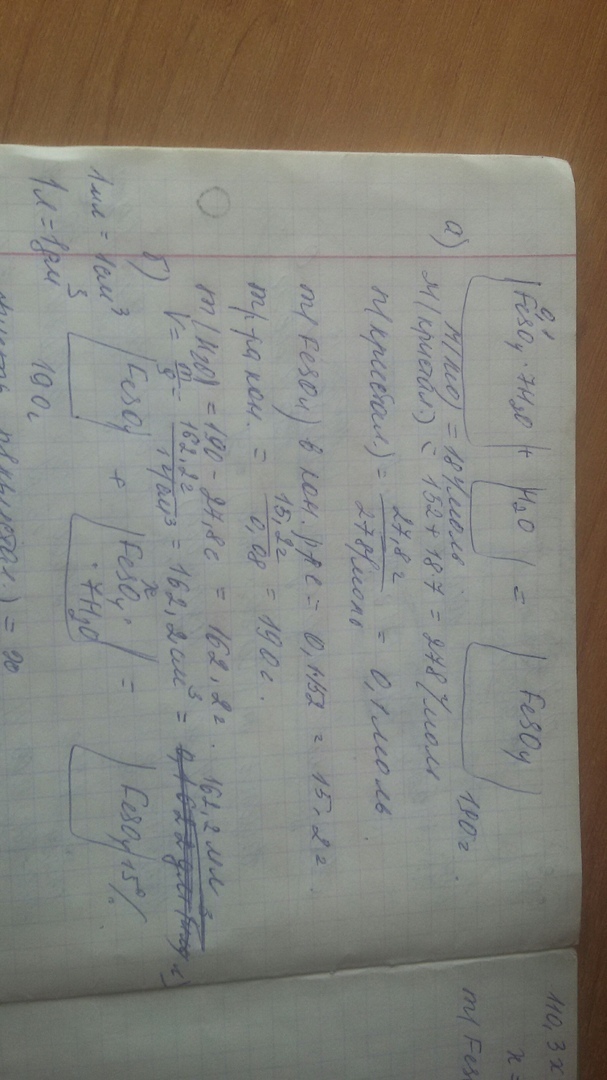 а) FeSO4·7H2O + H2O = FeSO4
190г.
M(H2O) = 18 г/моль
M(кристал.) = 152+18·7 = 278 г/моль
n(кристал.) = 27,8г / 278г/моль = 0,1 моль
m(FeSO4) в кон. р-ре = 0,1·152 = 15,2г.
m р-ра кон. = 15,2г / 0,08 = 190г.
m(H2O) = 190 - 27,8г = 162,2г.
V = m/ρ = 162,2г / 1г/см³ = 162,2см³ = 162,2мл
б) FeSO4 + FeSO4·7H2O = FeSO4 15%
x
100г
1мл = 1см³
1л = 1дм³
110,3x
x =
m(FeS